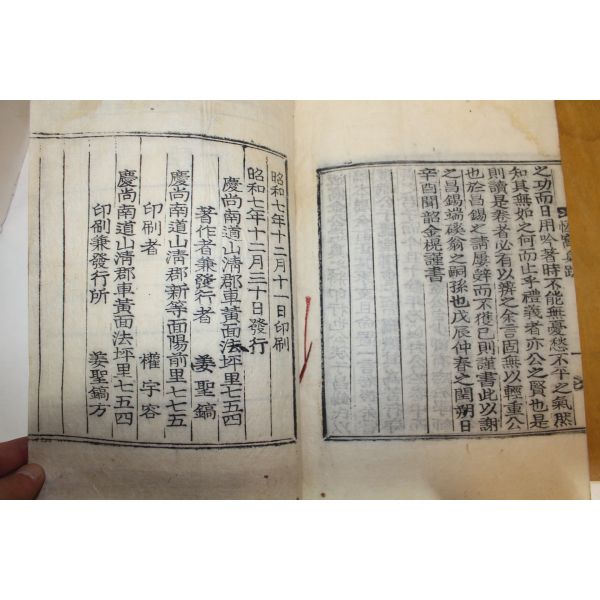 之功而日用吟著時不能無憂愁不平之氣然
知其無如之何而止乎禮義者亦公之賢也是
則讀是卷者必有以辨之余言固無以輕重公
也於昌錫之請屢辭而不獲已則謹書此以謝
之昌錫端磎翁之嗣孫也戊辰仲春之閏朔日
辛酉聞韶金榥謹書
昭和七年十二月十一日印刷
昭和七年十二月二十日發行
慶尚南道山清郡車黃面法坪里七五四
著作者兼發行者 姜聖鎬
慶尚南道山清郡新等面陽前里七七五
印刷者 權宇容
慶尚南道山清郡車黃面法坪里七五四
印刷兼發行所 姜聖鎬方